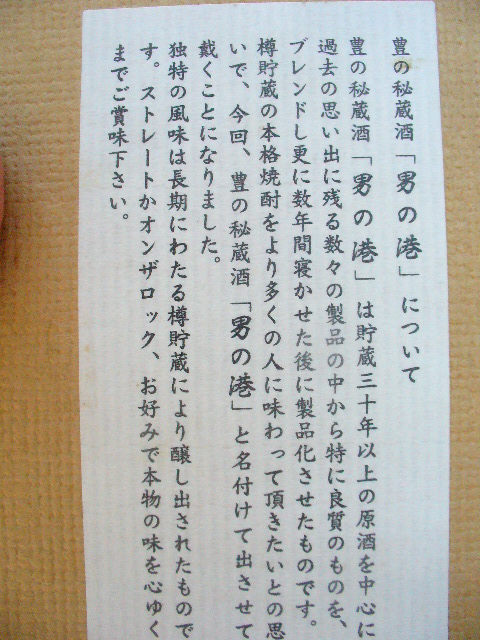 豊の秘蔵酒「男の港」について
豊の秘蔵酒「男の港」は貯蔵三十年以上の原酒を中心に
過去の思い出に残る数々の製品の中から特に良質のものを、
ブレンドし更に数年間寝かせた後に製品化させたものです。
樽貯蔵の本格焼酎をより多くの人に味わって頂きたいとの思
いで、今回、豊の秘蔵酒「男の港」と名付けて出させて
戴くことになりました。
独特の風味は長期にわたる樽貯蔵により醸し出されたもので
す。ストレートかオンザロック、お好みで本物の味を心ゆく
までご賞味下さい。